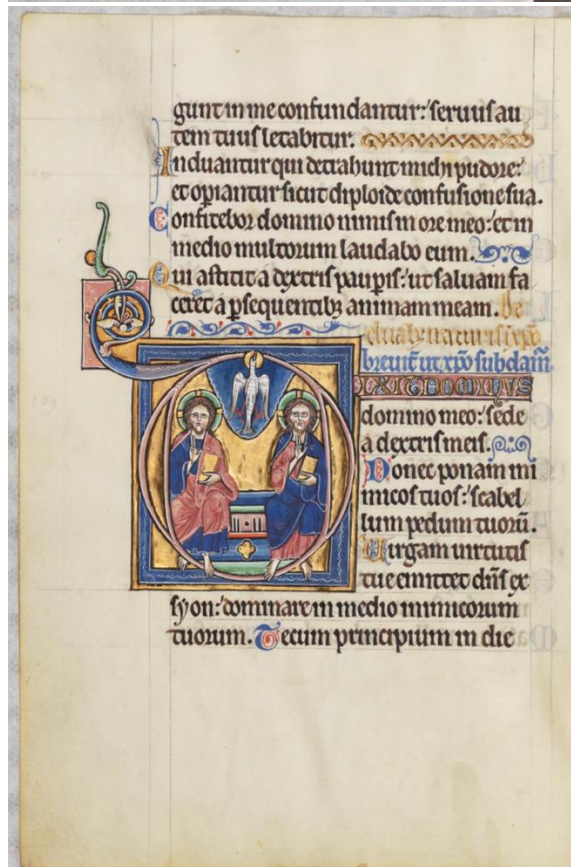 gunt in me confundantur: seruus au
tem tuus letabitur.
Induantur qui detrahunt michi pudore:
et opiantur sicut diploide confusione sua.
Confitebor domino nimis in ore meo: et in
medio multorum laudabo eum.
Qui astitit a dextris paupis: ut saluam fa
ceret a psequentib; animam meam. De
breuit ut xpo subdam
DIXIT DOMINUS
domino meo: sede
a dextris meis.
Donec ponam ini
micos tuos: scabel
lum pedum tuorū.
Uirgam uirtutis
tue emittet dn̄s ex
syon: dominare in medio inimicorum
tuorum. Tecum principium in die